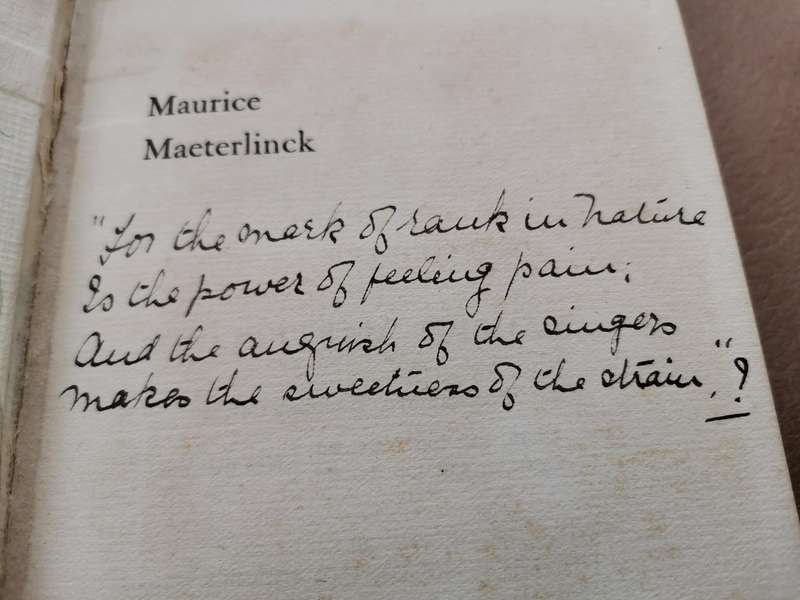 Maurice
Maeterlinck
"For the mark of rank in Nature
Is the power of feeling pain;
And the anguish of the singers
makes the sweetness of the strain."?